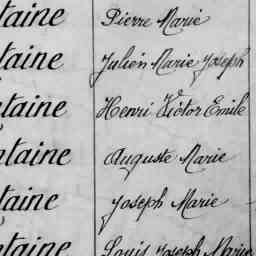 taine Pierre Marie
taine Julien Marie Joseph
taine Henri Victor Emile
ntaine Auguste Marie
taine Joseph Marie
ntaine Louis Joseph Marie